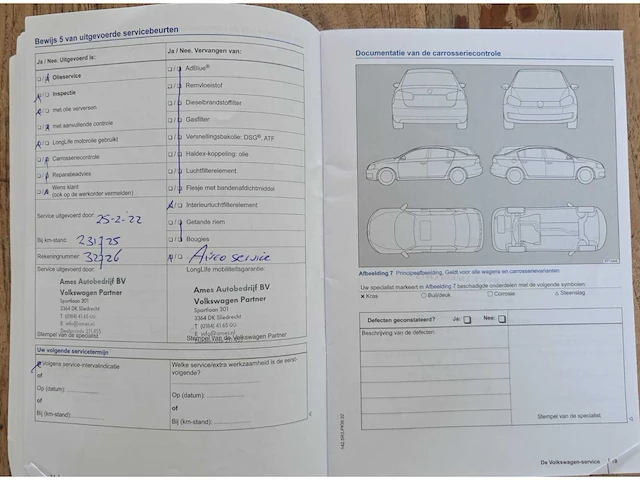 Bewijs 5 van uitgevoerde servicebeurten
Ja / Nee. Uitgevoerd is:
Olieservice
Inspectie
met olie verversen
met aanvullende controle
LongLife motorolie gebruikt
Carrosseriecontrole
Reparatieadvies
Wens klant
(ook op de werkorder vermelden)
Service uitgevoerd door:
25-2-'22
Bij km-stand:
231725
Rekeningnummer:
Service uitgevoerd door:
Ames Autobedrijf BV
Volkswagen Partner
Spoorlaan 301
3364 DK Sliedrecht
Stempel van de specialist
Ja / Nee. Vervangen van:
AdBlue®
Remvloeistof
Dieselbrandstoffilter
Gasfilter
Versnellingsbakolie: DSG®, ATF
Haldex-koppeling: olie
Luchtfilterelement
Flesje met bandenafdichtmiddel
Interieurluchtfilterelement
Getande riem
Bougies
Airco service
LongLife mobiliteitsgarantie:
Ames Autobedrijf BV
Volkswagen Partner
Spoorlaan 301
3364 DK Sliedrecht
Stempel van de Volkswagen Partner
Uw volgende servicetermijn
Volgens service-intervalindicatie
of
Op (datum):
of
Bij (km-stand):
Welke service/extra werkzaamheid is de eerst-
volgende?
Op (datum):
of
Bij (km-stand):
Documentatie van de carrosseriecontrole
Afbeelding 7 Principeafbeelding. Geldt voor alle wagens en carrosserievarianten
Uw specialist markeert in Afbeelding 7 beschadigde onderdelen met de volgende symbolen:
× Kras ○ Buil/deuk □ Corrosie △ Steenslag
Defecten geconstateerd? Ja: Nee:
Beschrijving van de defecten:
Stempel van de specialist
De Volkswagen-service